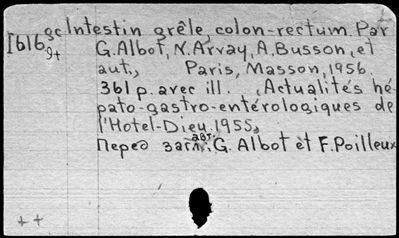 gc Intestin grêle, colon-rectum. Par
I616 9+ G. Albot, N. Arvay, A. Busson, et
aut., Paris, Masson, 1956.
361 p. avec ill. (Actualités hé-
pato-gastro-entérologiques de
l'Hotel-Dieu. 1955)
Перед загл. авт.: G. Albot et F. Poilleux
++